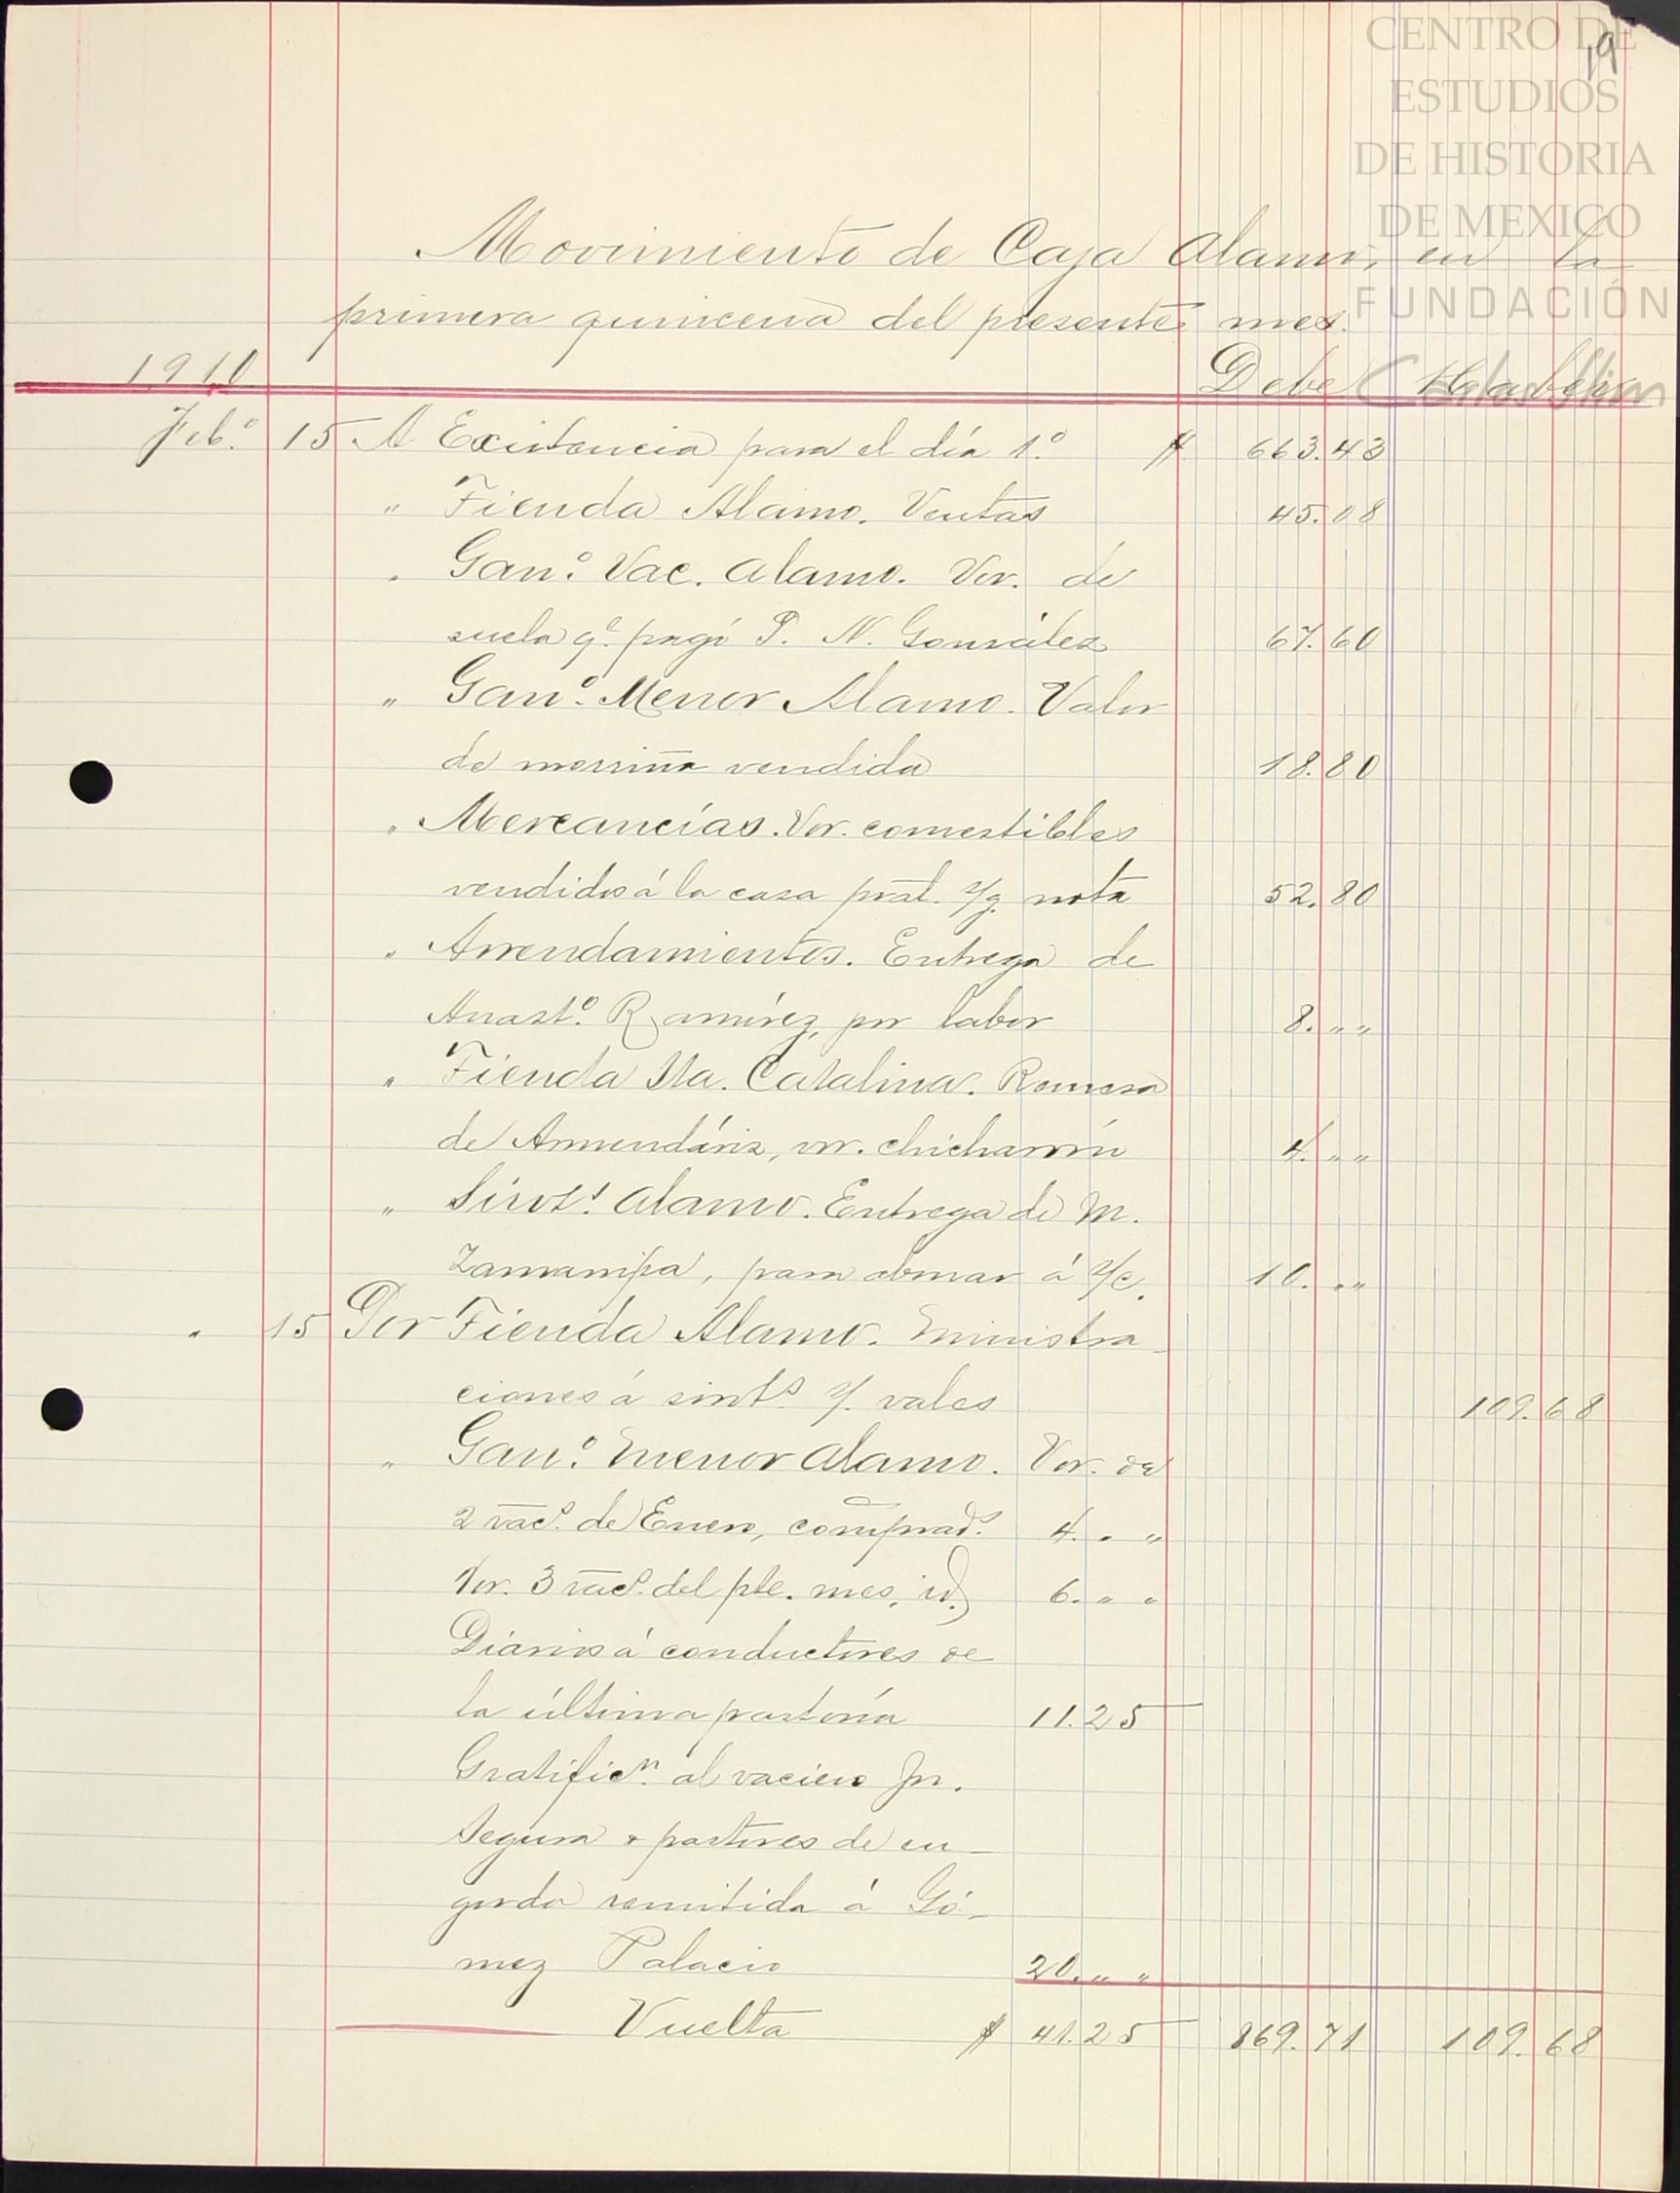 CENTRO DE
ESTUDIOS
DE HISTORIA
DE MEXICO
FUNDACIÓN
19
Movimiento de Caja Alamo, en la
primera quincena del presente mes.
1910 Debe
Feb.º 15 A Existencia para el día 1.º $ 663.43
" Tienda Alamo. Ventas 45.08
" Gan.º Vac. Alamo. Vor. de
suela q.e pagó P. N. González 67.60
" Gan.º Menor Alamo. Valor
de morriña vendida 18.80
" Mercancías. Vor. comestibles
vendidos á la casa pral. s/g. nota 52.80
" Arrendamientos. Entrega de
Anast.º Ramírez, por labor 8. " "
" Tienda Sta. Catalina. Remesa
de Armendáriz, vor. chicharrón 4. " "
" Sirvs.t Alamo. Entrega de M.
Zamarripa, para abonar á s/c. 10. " "
" 15 Por Tienda Alamo. Ministra-
ciones á sirvts. s/. vales 109.68
" Gan.º Menor Alamo. Vor. de
2 rac.s de Enero, comprad.s 4. " "
Vor. 3 rac.s del pte. mes, id. 6. " "
Diarios á conductores de
la última pastoría 11.25
Gratific.n al vaciero Jn.
Segura & pastores de en-
gorda remitida á Gó-
mez Palacio 20. " "
Vuelta $ 41.25 869.71 109.68